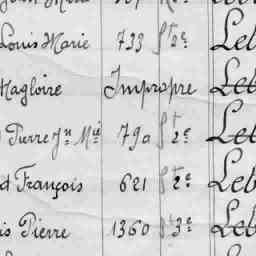 Louis Marie 733 St 2e Leb
Magloire Impropre Leb
Pierre Jn Mie 790 St 2e Leb
d François 621 St 2e Leb
is Pierre 1360 St 3e Leb